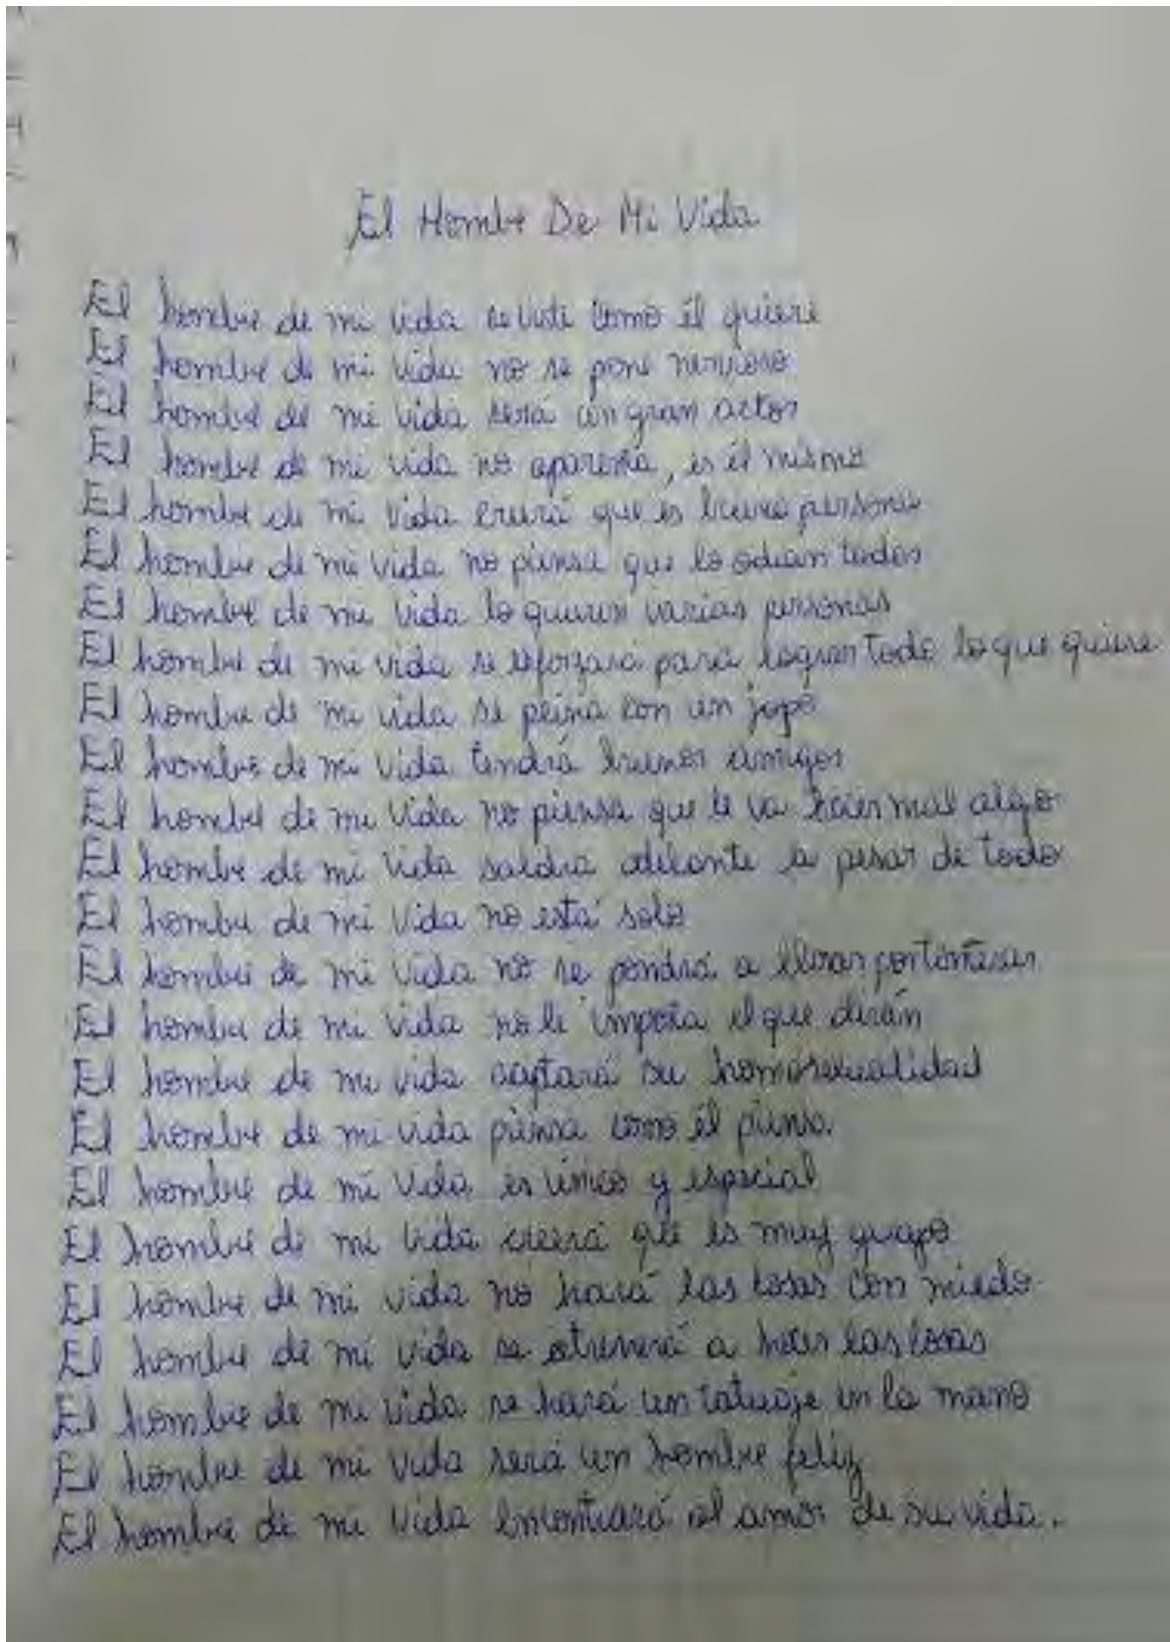 El Hombre De Mi Vida
El hombre de mi vida se viste como él quiere
El hombre de mi vida no se pone nervioso
El hombre de mi vida será un gran actor
El hombre de mi vida no aparenta, es él mismo
El hombre de mi vida creerá que es buena persona
El hombre de mi vida no piensa que lo odian todos
El hombre de mi vida lo quieren varias personas
El hombre de mi vida se esforzará para lograr todo lo que quiere
El hombre de mi vida se peina con un jopo
El hombre de mi vida tendrá buenos amigos
El hombre de mi vida no piensa que le va hacer mal algo
El hombre de mi vida saldrá adelante a pesar de todo
El hombre de mi vida no está solo
El hombre de mi vida no se pondrá a llorar por tonterias
El hombre de mi vida no le importa el que dirán
El hombre de mi vida aceptará su homosexualidad
El hombre de mi vida piensa como él piensa.
El hombre de mi vida es único y especial
El hombre de mi vida creerá que es muy guapo
El hombre de mi vida no hará las cosas con miedo
El hombre de mi vida se atreverá a hacer las cosas
El hombre de mi vida se hará un tatuaje en la mano
El hombre de mi vida será un hombre feliz
El hombre de mi vida encontrará el amor de su vida.